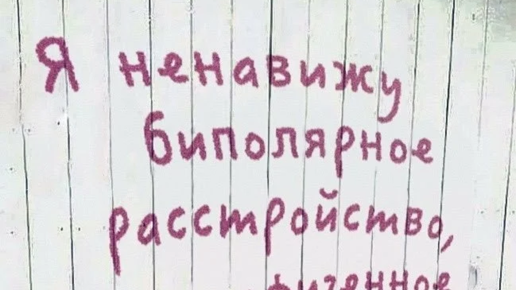 Я ненавижу
биполярное
расстройство,